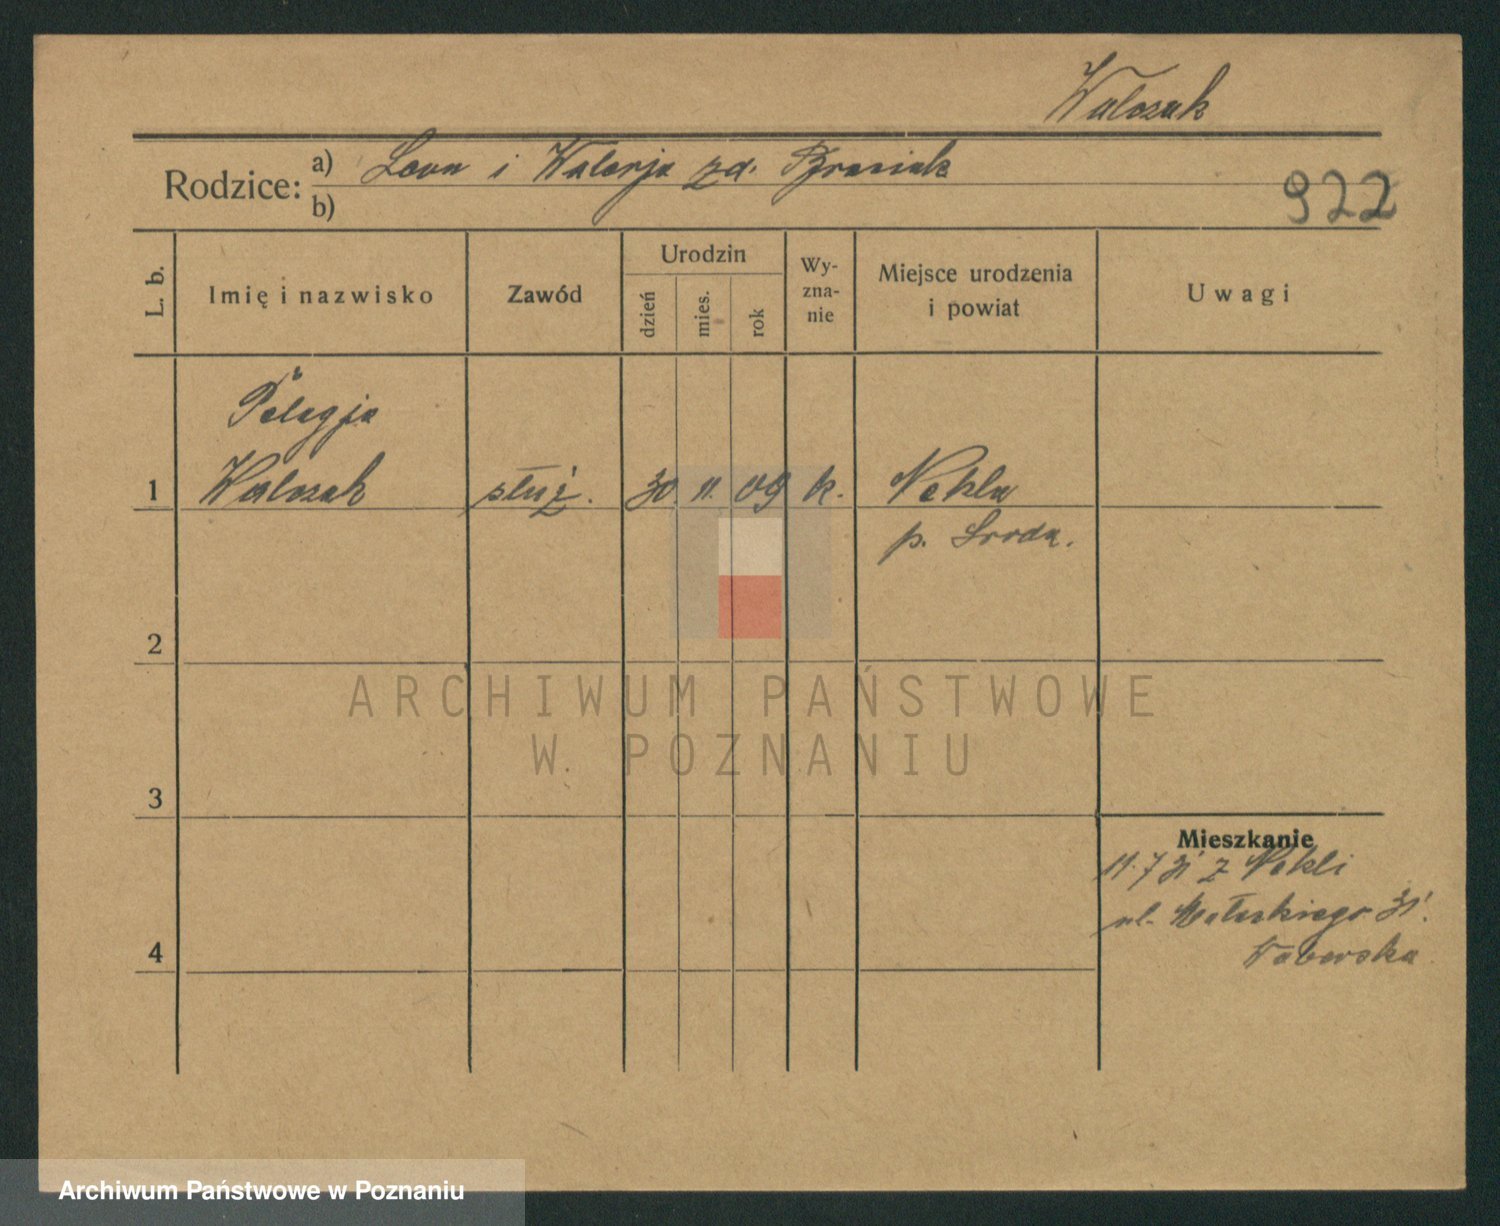 Walczak
Rodzice:
a) Leon i Walerja zd.
b)
922
L. b.
Imię i nazwisko
Zawód
Urodzin
dzień
mies.
rok
Wy-
zna-
nie
Miejsce urodzenia
i powiat
Uwagi
Pelagja
1 Walczak służ. 30. 11. 09 k. Nekla
p. Środa.
2
3
4
Mieszkanie
11.7 31 z Nekli
ul. 31.
Taborska
ARCHIWUM PAŃSTWOWE
W POZNANIU
Archiwum Państwowe w Poznaniu